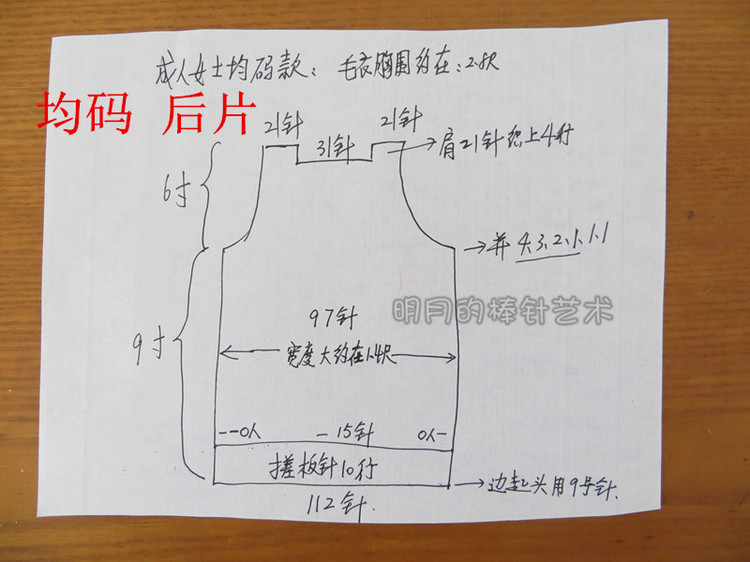 成人女士均码款：毛衣胸围约在：2.8尺
均码 后片
21针
21针
31针
肩21针织上4行
6寸
并 4.3.2.1.1.1
明月的棒针艺术
97针
9寸
宽度大约在1.4尺
-15针
搓板针10行
边起头用9号针.
112针.